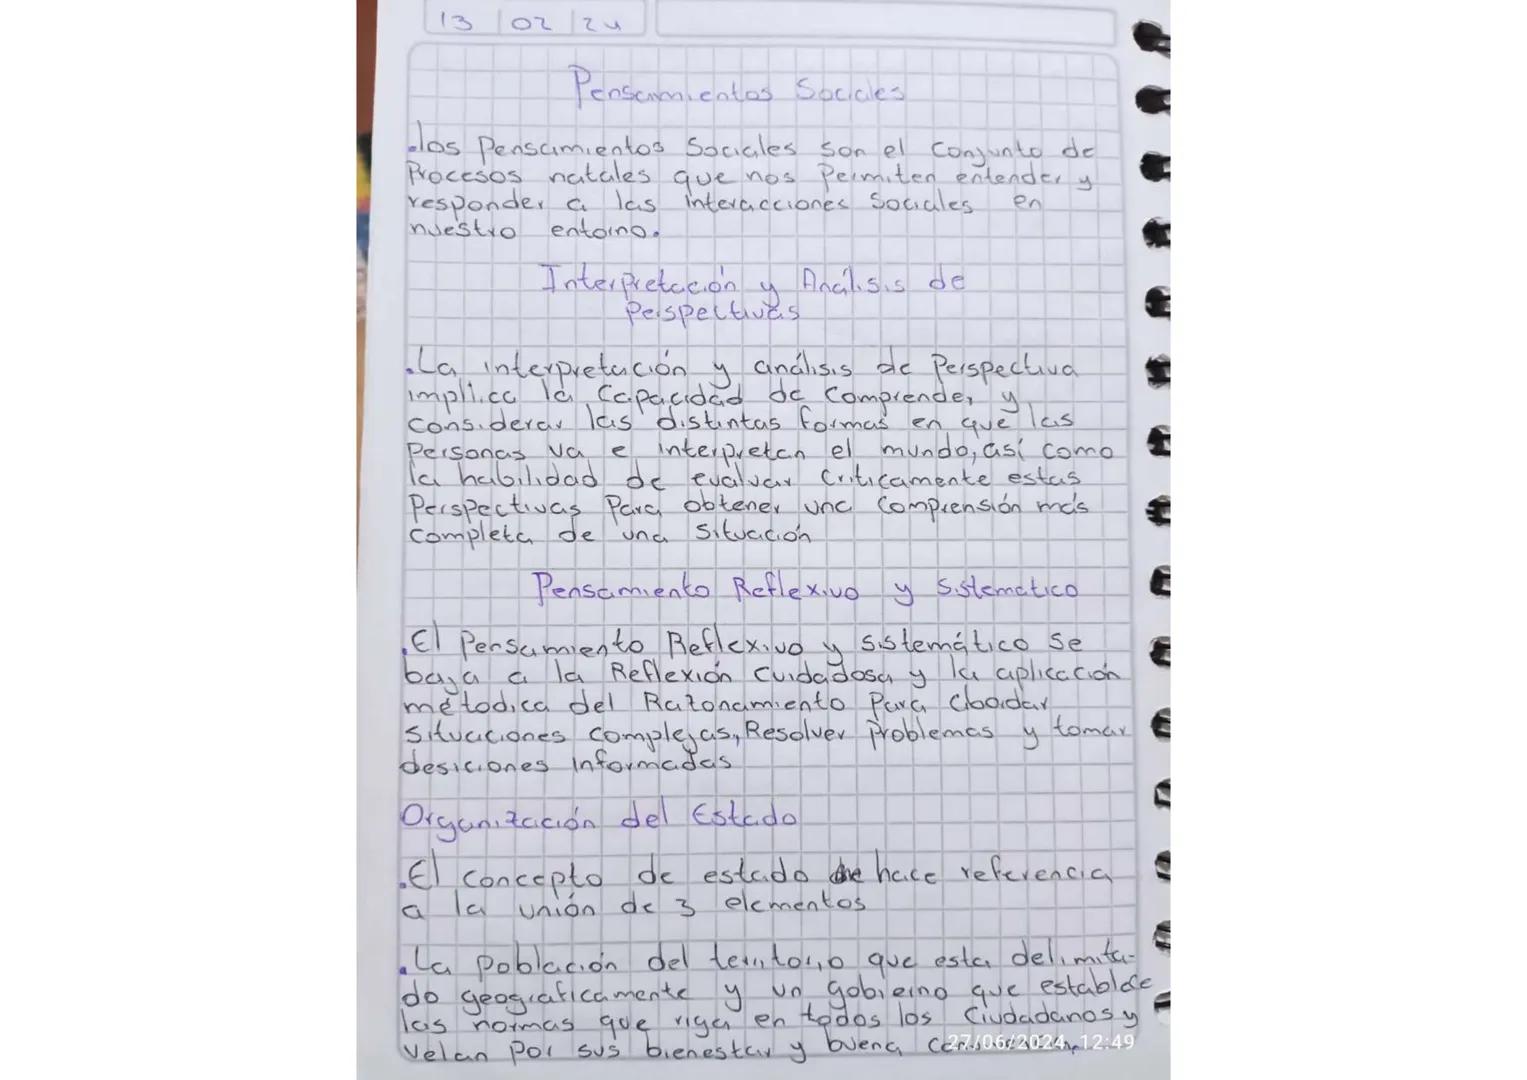 13 02 24
Pensamientos Sociales
.los Pensamientos Sociales son el conjunto de
Procesos natales que nos Permiten entender y
responder a las interacciones Sociales en
nuestro entorno.
Interpretación y Análisis de
Perspectivas
.La interpretación y análisis de Perspectiva
implica la Capacidad de Comprender y
considerar las distintas formas en que las
Personas va e interpretan el mundo, así como
la habilidad de evaluar Criticamente estas
Perspectivas Para obtener una Comprensión más
Completa de una Situación
Pensamiento Reflexivo y Sistematico
.El Pensamiento Reflexivo y sistemático Se
baja a la Reflexión Cuidadosa y la aplicación
métodica del Razonamiento Para abordar
situaciones complejas, Resolver Problemas y tomar
desiciones informadas
Organización del Estado
.El concepto de estado hace referencia
a la unión de 3 elementos
.La Población del territorio que esta delimita-
do geograficamente y un gobierno que establece
las normas que riga en todos los Ciudadanos y
Velan Por sus bienestar y buena
27/06/2024 12:49